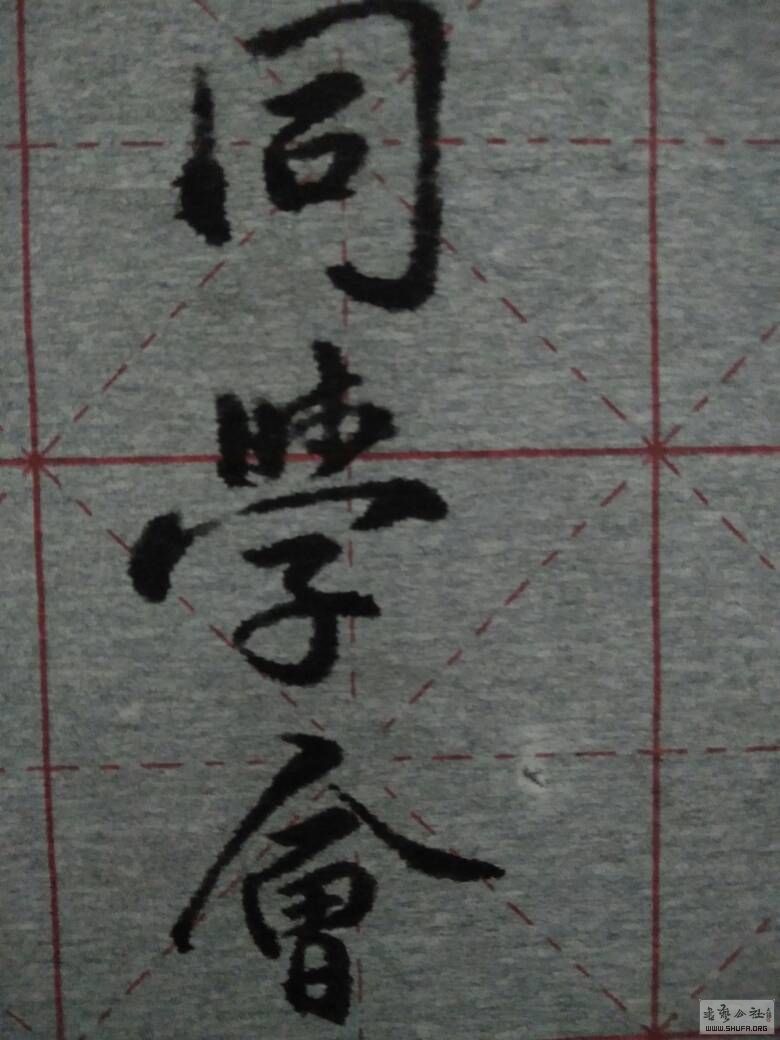 同學會
书艺公社
WWW.SHUFA.ORG